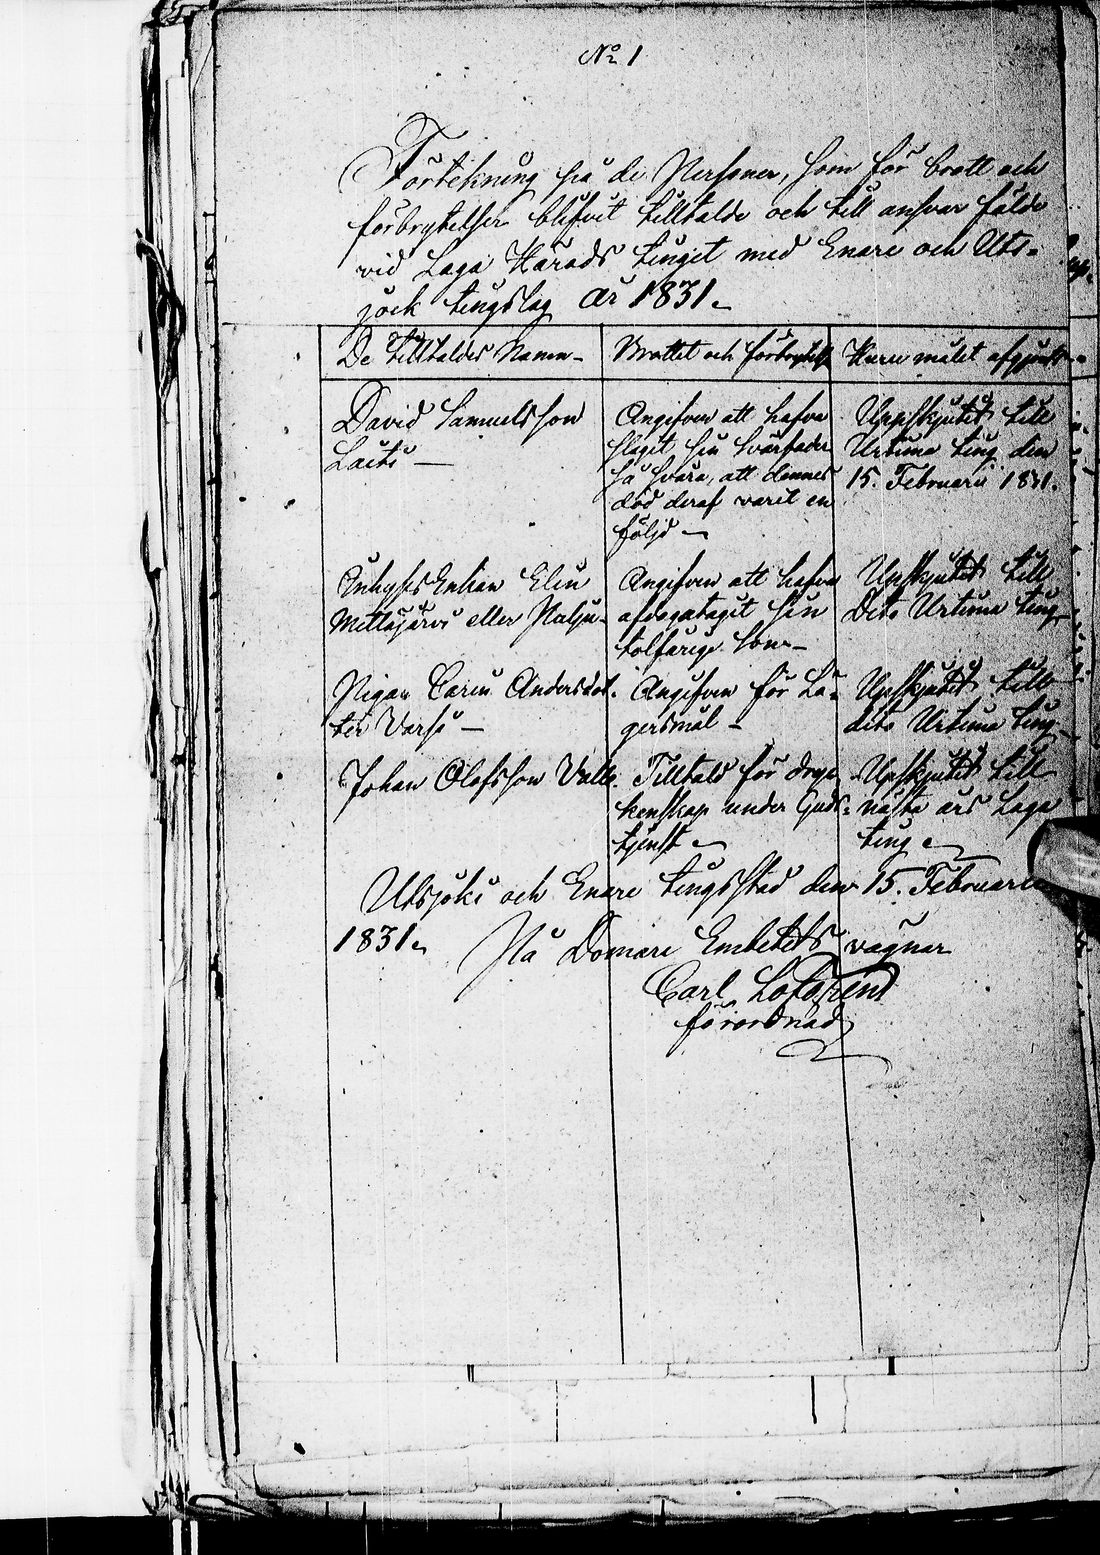 No 1
Förtekning på de Personer, som för brott och
förbrytelser blifvit tilltalde och till ansvar fälde
vid Laga Härads tinget med Enare och Uts-
jock tingslag År 1831.
De tilltaldes Namn-
Brottet och förbrytels
Huru målet afgjordt
David Samuelsson
Laiti —
Angifven att hafva
slagit sin Svärfader
så svåra, att dennes
död deraf varit en
följd —
Uppskjutit till
Urtima ting den
15. Februarii 1831.
Enkan Elin
Mettäjärvi eller
Angifven att hafva
afdagatagit sin
tolfåriga son —
Upskjutit till
Dito Urtima ting
Pigan Carin Andersdot-
ter Varsi —
Angifven för Lä-
gersmål —
Upskjutit till
dito Urtima ting
Johan Olofsson Valle
Tilltald för dryc
kenskap under Guds-
tjenst
Upskjutit till
nästa års Laga
ting
Utsjoki och Enare tingsstad den 15. Februarii
1831. På Domare Embetets vägnar
Carl
förordnad